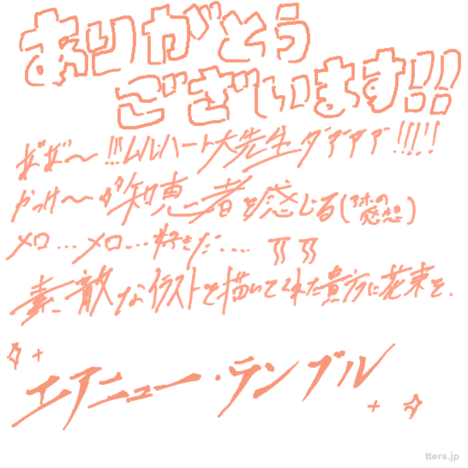 ありがとう
ございます!!
ああ〜!!!ムルハート大先生ダアアア!!!!!
かっけ〜が知恵者を感じる(アホの感想)
メロ...メロ...好きだ....
素敵なイラストを描いてくれた貴方に花束を。
エアニュー・テンブル
tters.jp